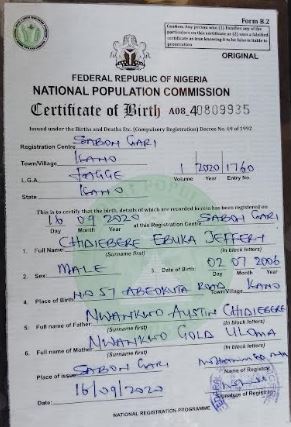 Form B.2
Caution: Any person who (1) falsifies any of the particulars on this certificate or (2) uses a falsified certificate as true knowing it to be false is liable to prosecution
ORIGINAL
FEDERAL REPUBLIC OF NIGERIA
NATIONAL POPULATION COMMISSION
Certificate of Birth A08 40809935
Issued under the Births and Deaths Etc. (Compulsory Registration) Decree No. 69 of 1992
Registration Centre SABON GARI
Town/Village KANO 1 2020 1760
L.G.A. FAGGE Volume Year Entry No.
State KANO
This is to certify that the birth, details of which are recorded herein has been registered on
16 09 2020 at this Registration Centre SABON GARI
Day Month Year
1. Full Name CHIDIEBERE EBUKA JEFFERY
(Surname first) (In block letters)
2. Sex MALE 3. Date of Birth: 02 07 2006
Day Month Year
4. Place of Birth NO 57 ABEOKUTA ROAD KANO
Town/Village
5. Full name of Father: NWANKWO AUSTIN CHIDIEBERE
(Surname first) (In block letters)
6. Full name of Mother: NWANKWO GOLD ULOMA
(Surname first) (In block letters)
Place of issue SABON GARI
Name of Registrar
Date: 16/09/2020
Signature of Registrar
NATIONAL REGISTRATION PROGRAMME